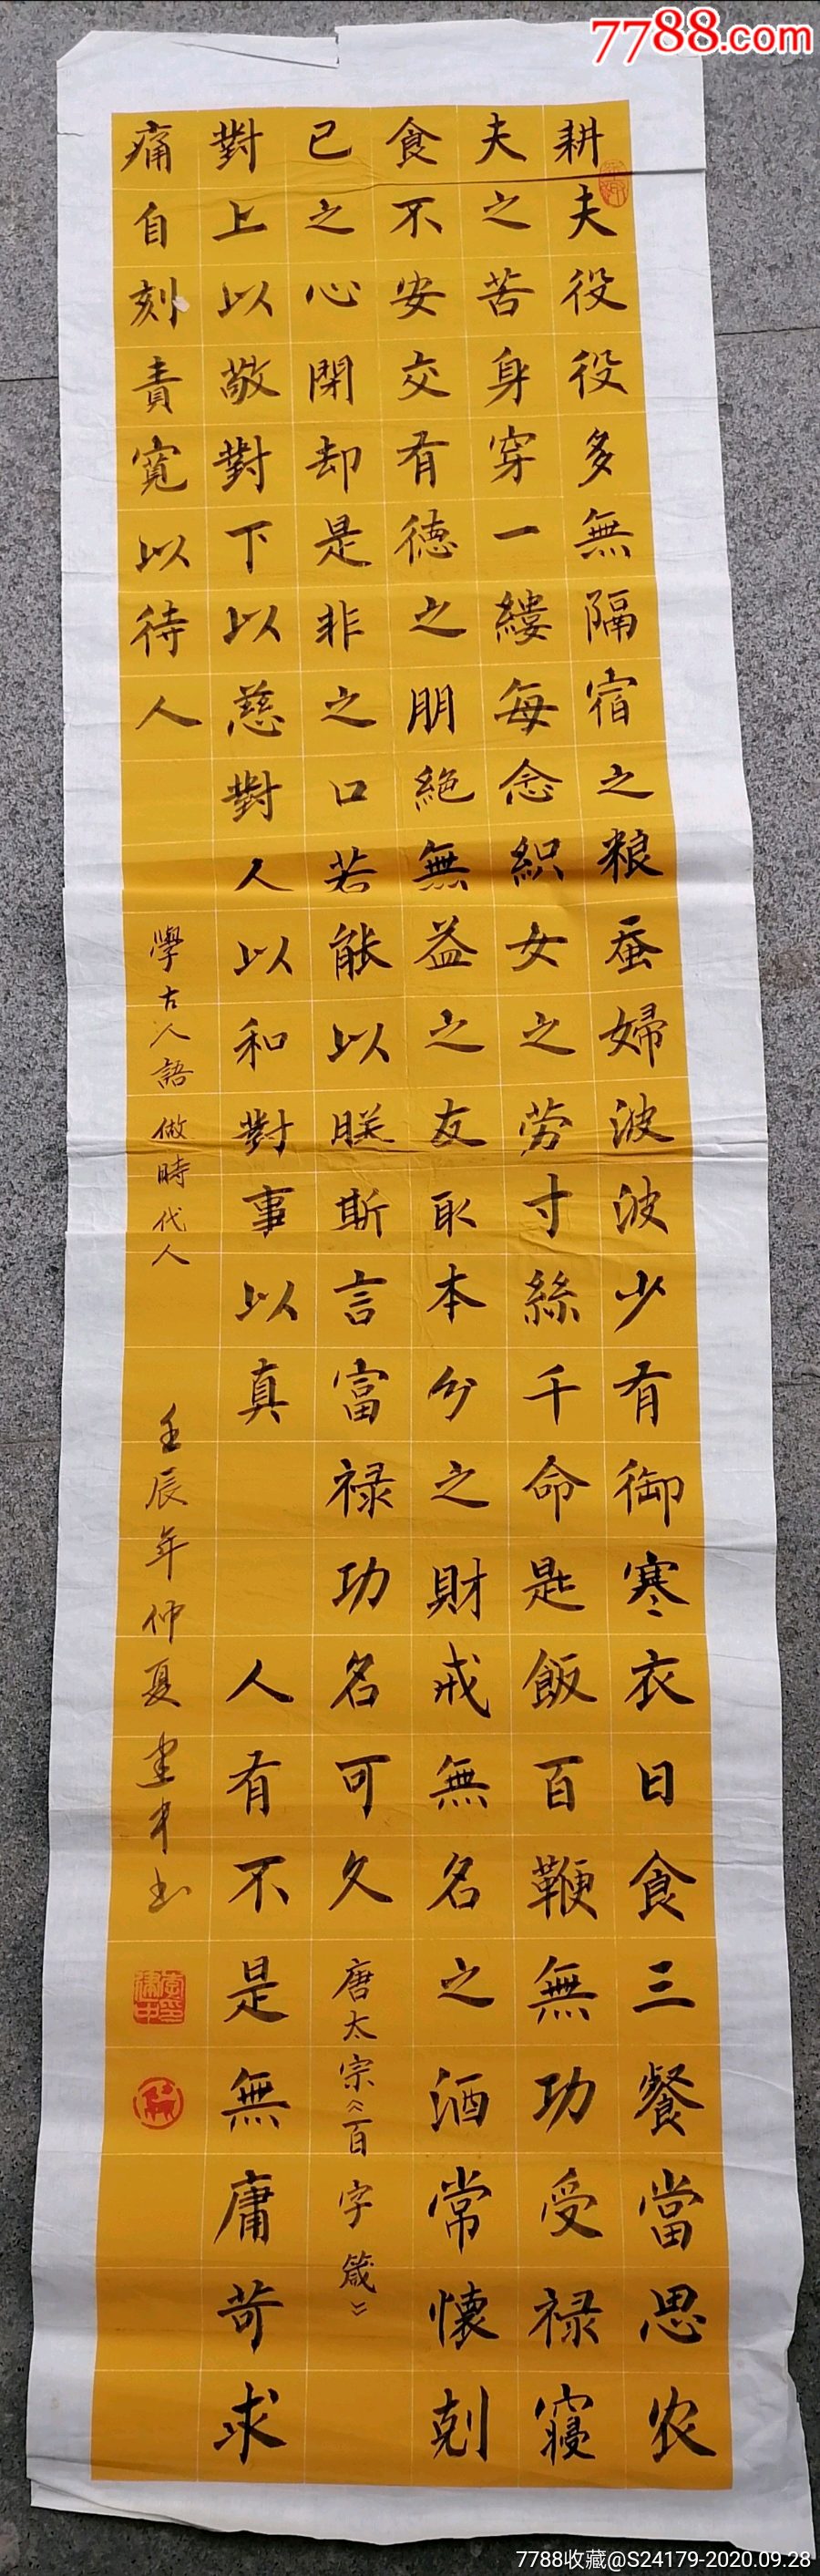 7788.com
耕夫役役多無隔宿之粮蚕婦波波少有御寒衣日食三餐當思农
夫之苦身穿一縷每念織女之劳寸絲千命匙飯百鞭無功受禄寢
食不安交有德之朋絶無益之友取本分之財戒無名之酒常懷剋
已之心閉却是非之口若能以朕斯言富禄功名可久 唐太宗《百字箴》
對上以敬對下以慈對人以和對事以真 人有不是無庸苛求
痛自刻責寬以待人 學古人語做時代人 壬辰年仲夏建中书
7788收藏@S24179-2020.09.28